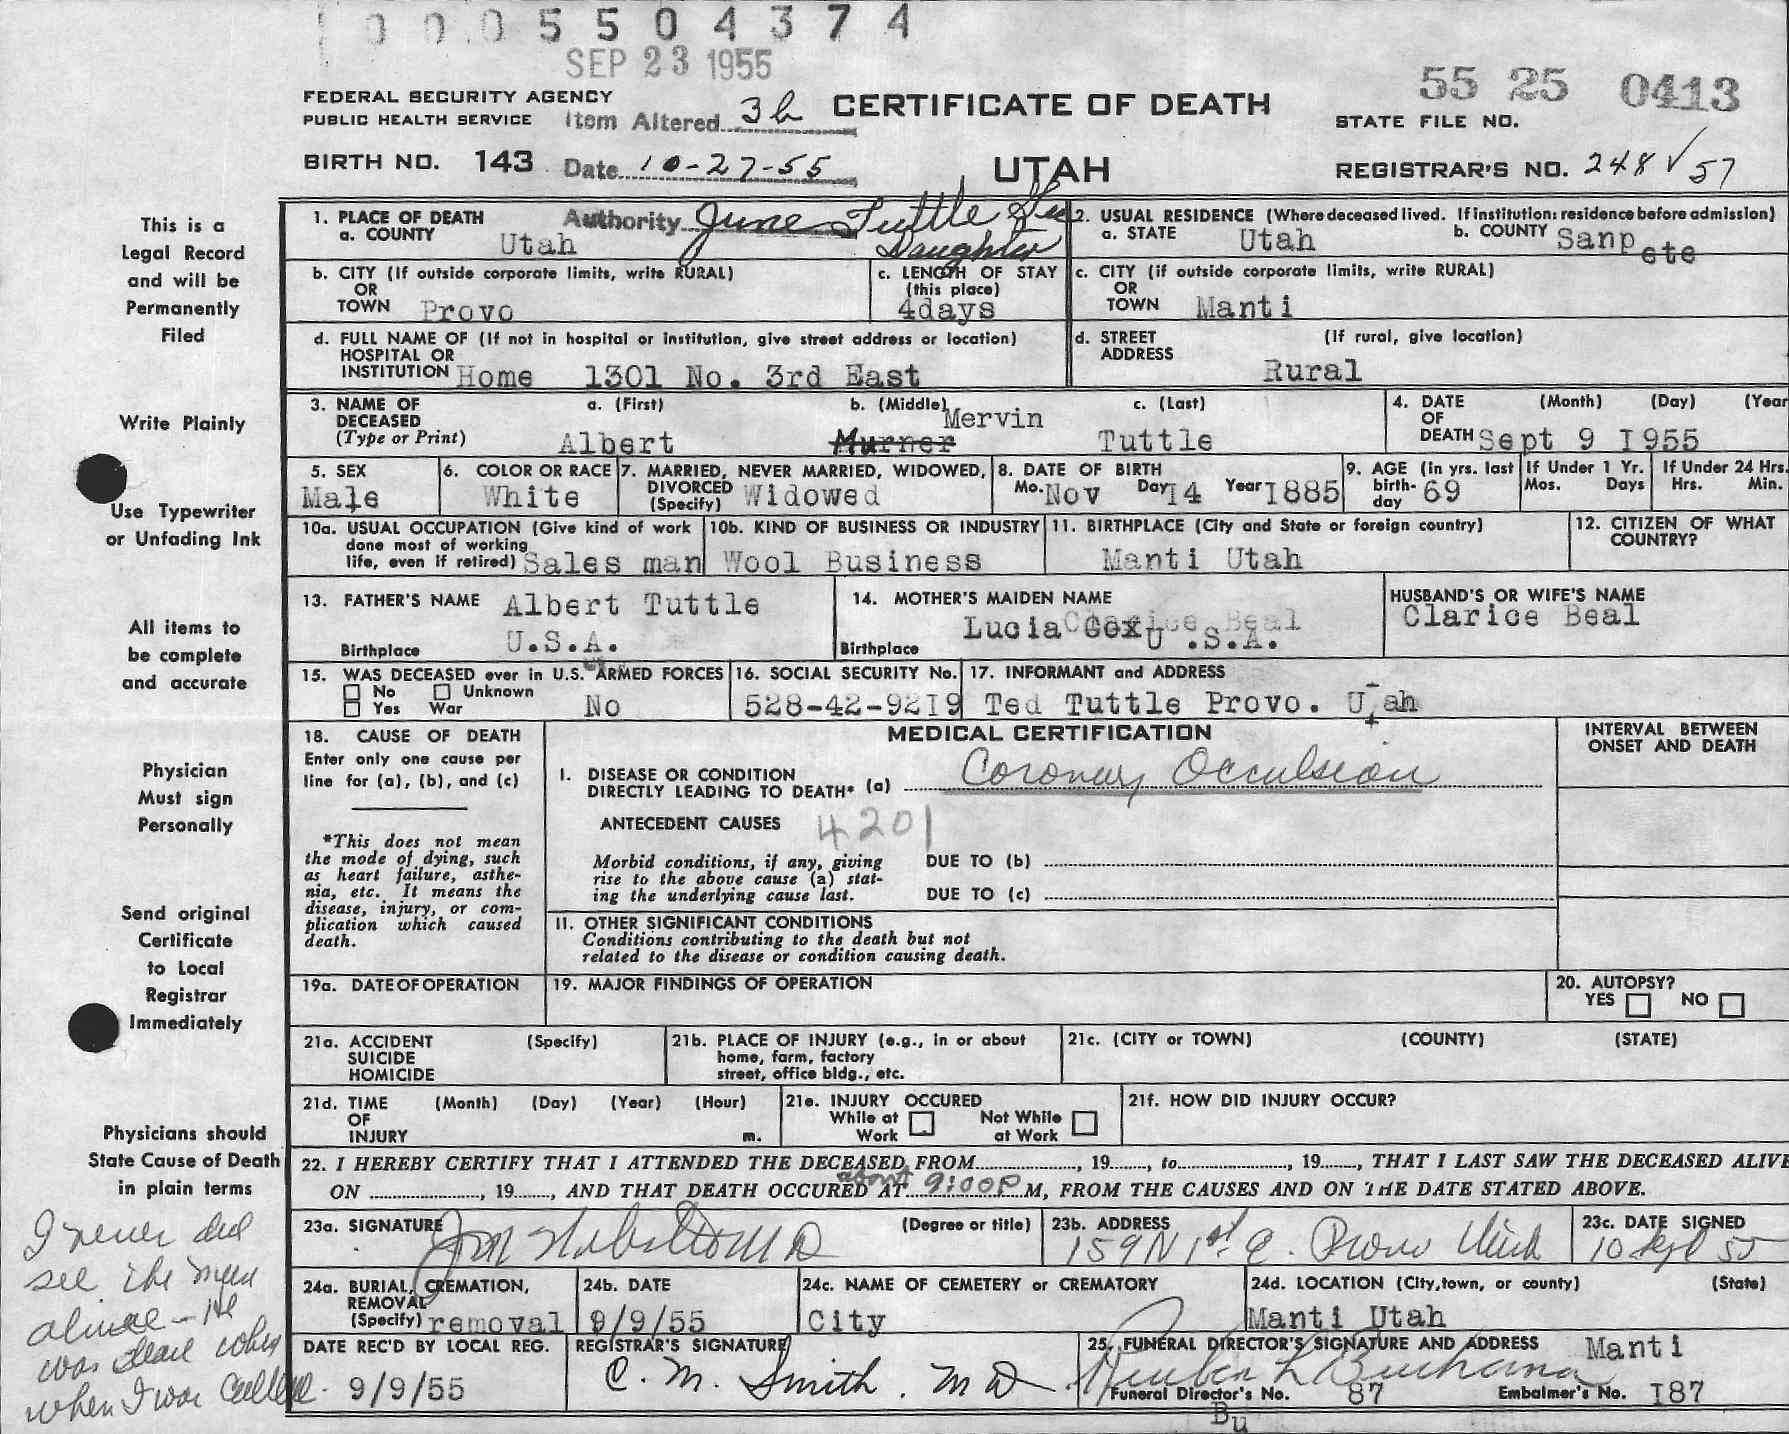 0005504374
SEP 23 1955
55 25 0413
FEDERAL SECURITY AGENCY
PUBLIC HEALTH SERVICE
Item Altered 3b
CERTIFICATE OF DEATH
STATE FILE NO.
BIRTH NO. 143
Date 10-27-55
UTAH
REGISTRAR'S NO. 248 ✓ 57
This is a
Legal Record
and will be
Permanently
Filed
Write Plainly
Use Typewriter
or Unfading Ink
All items to
be complete
and accurate
Physician
Must sign
Personally
Send original
Certificate
to Local
Registrar
Immediately
Physicians should
State Cause of Death
in plain terms
I never did
see the man
alive - He
was dead when
when I was called.
1. PLACE OF DEATH
a. COUNTY Utah
Authority June Tuttle
Daughter
2. USUAL RESIDENCE (Where deceased lived. If institution: residence before admission)
a. STATE Utah b. COUNTY Sanpete
b. CITY (If outside corporate limits, write RURAL)
OR
TOWN Provo
c. LENGTH OF STAY
(this place)
4days
c. CITY (if outside corporate limits, write RURAL)
OR
TOWN Manti
d. FULL NAME OF (If not in hospital or institution, give street address or location)
HOSPITAL OR
INSTITUTION Home 1301 No. 3rd East
d. STREET (If rural, give location)
ADDRESS
Rural
3. NAME OF DECEASED
(Type or Print)
a. (First) b. (Middle) c. (Last)
Mervin
Albert Murner Tuttle
4. DATE (Month) (Day) (Year
OF
DEATH Sept 9 1955
5. SEX
Male
6. COLOR OR RACE
White
7. MARRIED, NEVER MARRIED, WIDOWED,
DIVORCED
(Specify) Widowed
8. DATE OF BIRTH
Mo. Nov Day 14 Year 1885
9. AGE (in yrs. last
birth-
day 69
If Under 1 Yr.
Mos. Days
If Under 24 Hrs.
Hrs. Min.
10a. USUAL OCCUPATION (Give kind of work
done most of working
life, even if retired) Sales man
10b. KIND OF BUSINESS OR INDUSTRY
Wool Business
11. BIRTHPLACE (City and State or foreign country)
Manti Utah
12. CITIZEN OF WHAT
COUNTRY?
13. FATHER'S NAME Albert Tuttle
Birthplace U.S.A.
14. MOTHER'S MAIDEN NAME
Lucia Cox
Clarice Beal
Birthplace U.S.A.
HUSBAND'S OR WIFE'S NAME
Clarice Beal
15. WAS DECEASED ever in U.S. ARMED FORCES
No Unknown
Yes War
No
16. SOCIAL SECURITY No.
528-42-9219
17. INFORMANT and ADDRESS
Ted Tuttle Provo. Utah
18. CAUSE OF DEATH
Enter only one cause per
line for (a), (b), and (c)
*This does not mean
the mode of dying, such
as heart failure, asthe-
nia, etc. It means the
disease, injury, or com-
plication which caused
death.
MEDICAL CERTIFICATION
INTERVAL BETWEEN
ONSET AND DEATH
I. DISEASE OR CONDITION
DIRECTLY LEADING TO DEATH* (a) Coronary Occulsion
ANTECEDENT CAUSES 4201
Morbid conditions, if any, giving
rise to the above cause (a) stat-
ing the underlying cause last.
DUE TO (b)
DUE TO (c)
II. OTHER SIGNIFICANT CONDITIONS
Conditions contributing to the death but not
related to the disease or condition causing death.
19a. DATE OF OPERATION
19. MAJOR FINDINGS OF OPERATION
20. AUTOPSY?
YES NO
21a. ACCIDENT (Specify)
SUICIDE
HOMICIDE
21b. PLACE OF INJURY (e.g., in or about
home, farm, factory
street, office bldg., etc.
21c. (CITY or TOWN) (COUNTY) (STATE)
21d. TIME (Month) (Day) (Year) (Hour)
OF
INJURY m.
21e. INJURY OCCURED
While at Work
Not While at Work
21f. HOW DID INJURY OCCUR?
22. I HEREBY CERTIFY THAT I ATTENDED THE DECEASED FROM , 19 , to , 19 , THAT I LAST SAW THE DECEASED ALIVE
ON , 19 , AND THAT DEATH OCCURED AT about 9:00P M, FROM THE CAUSES AND ON THE DATE STATED ABOVE.
23a. SIGNATURE (Degree or title)
MD
23b. ADDRESS
159 N 1st E. Provo Utah
23c. DATE SIGNED
10 Sept 55
24a. BURIAL, CREMATION,
REMOVAL
(Specify) removal
24b. DATE
9/9/55
24c. NAME OF CEMETERY or CREMATORY
City
24d. LOCATION (City, town, or county) (State)
Manti Utah
DATE REC'D BY LOCAL REG.
9/9/55
REGISTRAR'S SIGNATURE
C. M. Smith. MD
25. FUNERAL DIRECTOR'S SIGNATURE AND ADDRESS Manti
Reuben L Buchanan
Funeral Director's No. 87 Embalmer's No. 187
Bu